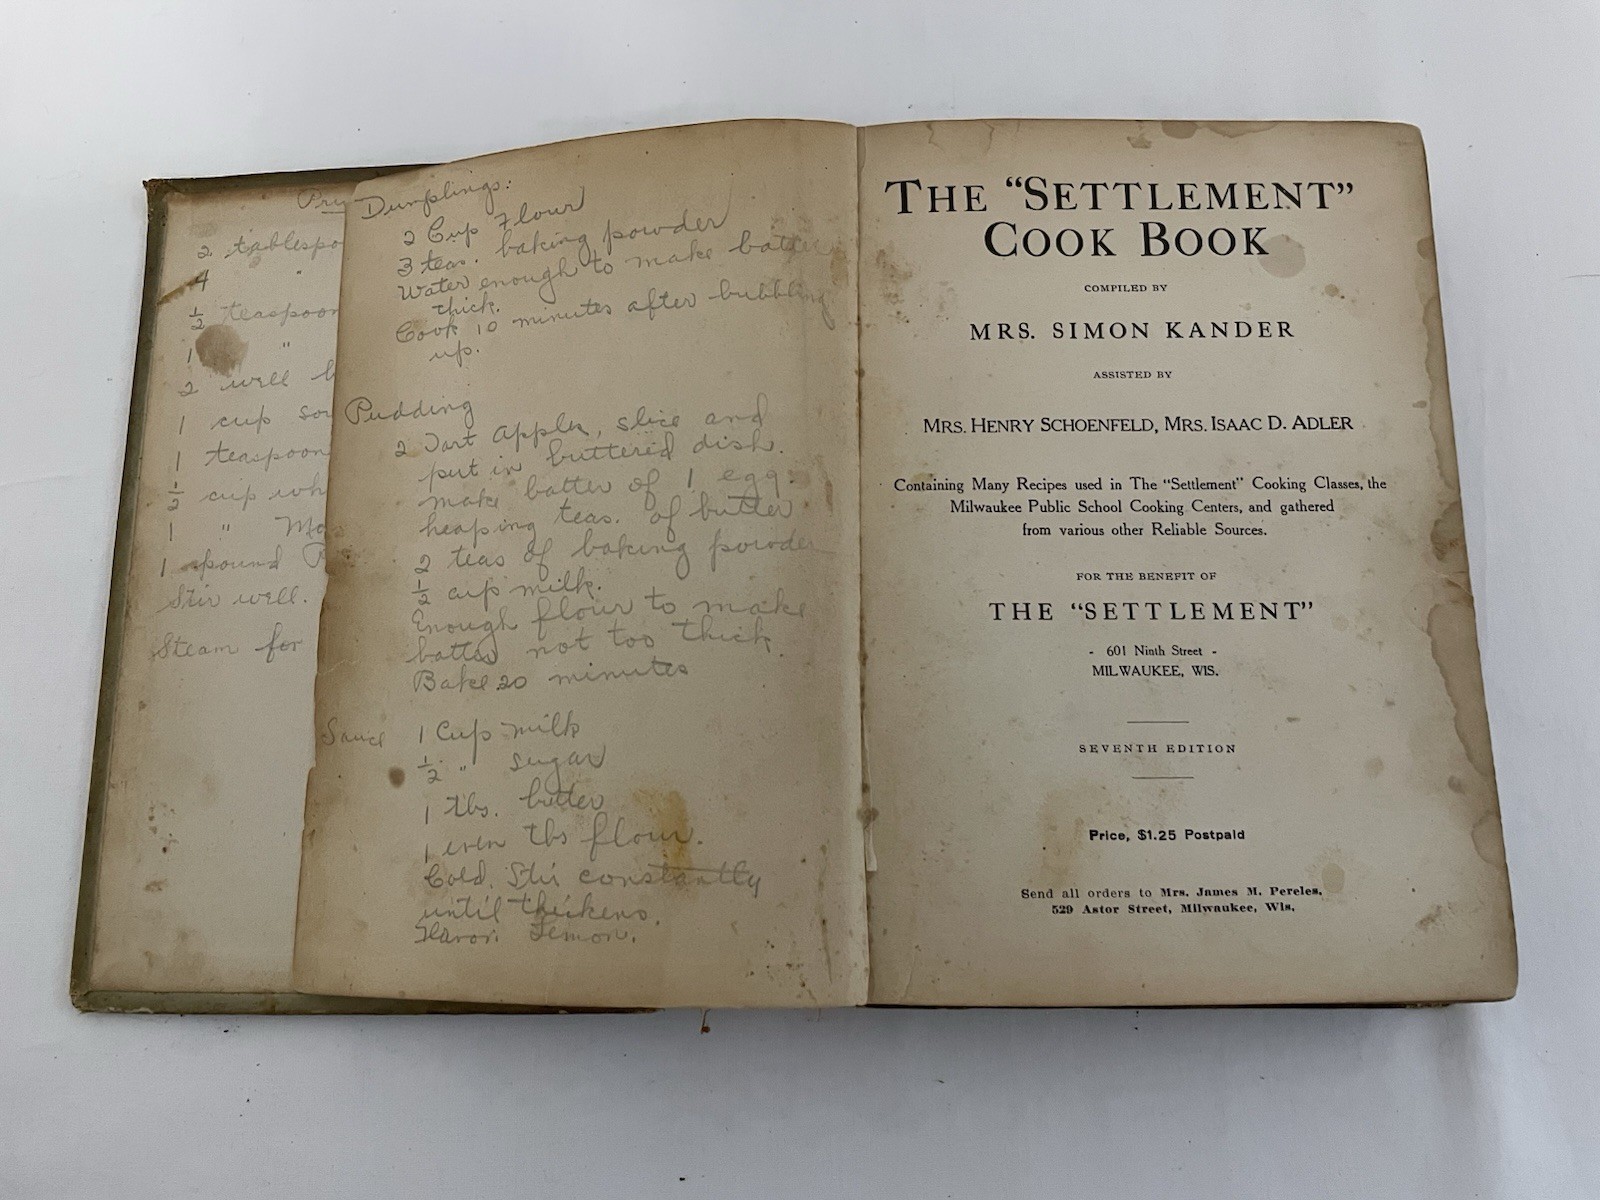 2 tablespo
4 "
½ teaspoon
1 "
2 well b
1 cup sou
1 teaspoon
½ cup wh
1 " Mo
1 pound
Stir well.
Steam for
Dumplings:
2 Cup Flour
3 teas. baking powder
Water enough to make batter
thick.
Cook 10 minutes after bubbling
up.
Pudding
2 Tart apples, slice and
put in buttered dish.
make batter of 1 egg.
heaping teas. of butter
2 teas of baking powder
½ cup milk.
Enough flour to make
batter not too thick.
Bake 20 minutes
Sauce 1 Cup milk
½ " sugar
1 tbs. butter
1 even tbs flour.
Cold. Stir constantly
until thickens.
Flavor. Lemon.
THE "SETTLEMENT"
COOK BOOK
COMPILED BY
MRS. SIMON KANDER
ASSISTED BY
MRS. HENRY SCHOENFELD, MRS. ISAAC D. ADLER
Containing Many Recipes used in The "Settlement" Cooking Classes, the
Milwaukee Public School Cooking Centers, and gathered
from various other Reliable Sources.
FOR THE BENEFIT OF
THE "SETTLEMENT"
- 601 Ninth Street -
MILWAUKEE, WIS.
SEVENTH EDITION
Price, $1.25 Postpaid
Send all orders to Mrs. James M. Pereles,
529 Astor Street, Milwaukee, Wis.